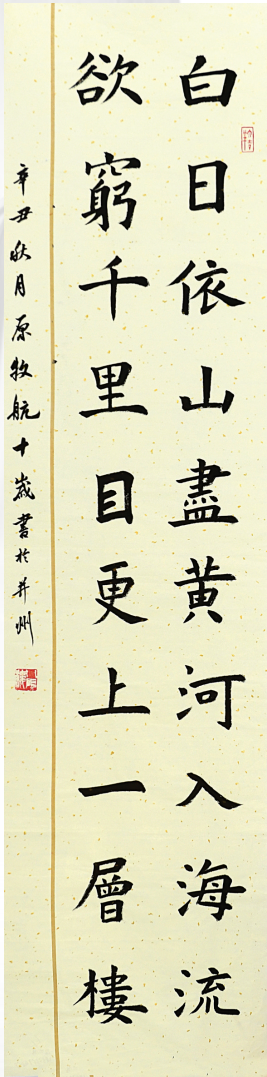 白日依山盡黄河入海流
欲窮千里目更上一層樓
辛丑秋月原牧航十歲書於并州